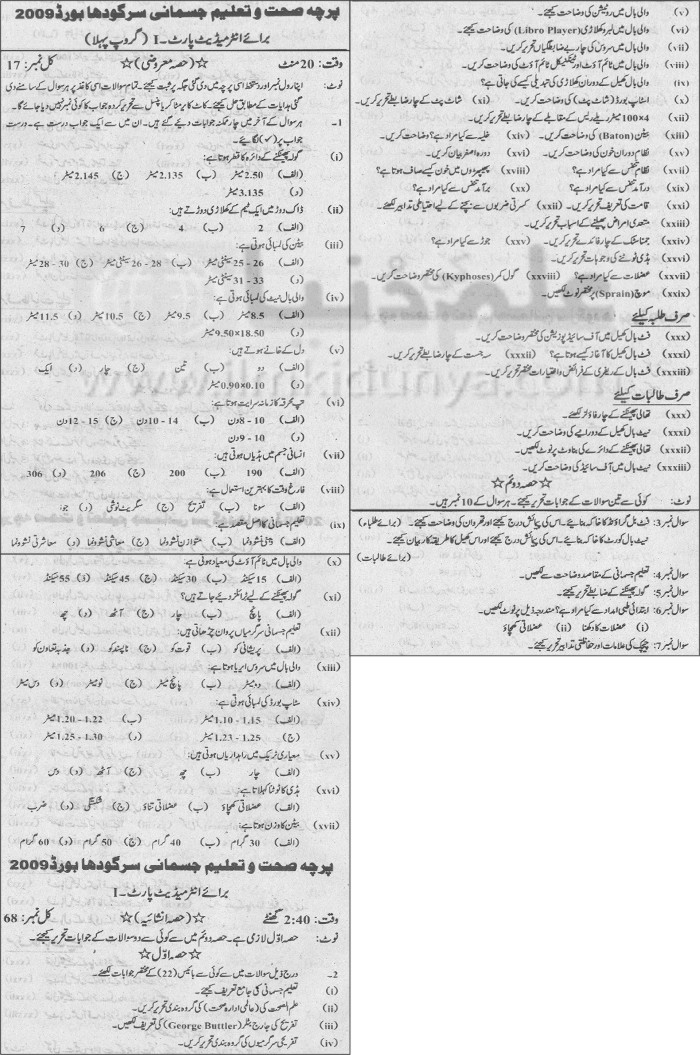 پرچہ صحت و تعلیم جسمانی سرگودھا بورڈ 2009
برائے انٹرمیڈیٹ پارٹ ۔ I (گروپ پہلا)
وقت: 20 منٹ ☆(حصہ معروضی)☆ کل نمبر: 17
1- ہر سوال کے آخر میں چار ممکنہ جوابات دیے گئے ہیں۔ ان میں سے ایک جواب درست ہے۔ درست
جواب پر (✓) لگائیے۔
(i) گولہ پھینکنے کے دائرہ کا قطر ہوتا ہے:
(الف) 2.50 میٹر (ب) 2.135 میٹر (ج) 2.145 میٹر
(د) 3.135 میٹر
(ii) ڈاک دوڑ میں ایک ٹیم کے کھلاڑی دوڑتے ہیں:
(الف) 2 (ب) 4 (ج) 6 (د) 7
(iii) بیٹن کی لمبائی ہوتی ہے:
(الف) 25 - 26 سینٹی میٹر (ب) 26 - 28 سینٹی میٹر (ج) 28 - 30 میٹر
(د) 31 - 33 سینٹی میٹر
(iv) والی بال نیٹ کی لمبائی ہوتی ہے:
(الف) 8.5 میٹر (ب) 9.5 میٹر (ج) 10.5 میٹر (د) 11.5 میٹر
(د) 9.50×18.50 میٹر
(v) دل کے خانے ہوتے ہیں:
(الف) دو (ب) تین (ج) چار (د) ایک
(د) 0.90×0.10 میٹر
(vi) تپ محرقہ کا زمانہ سرایت ہوتا ہے:
(الف) 8 - 10 دن (ب) 10 - 14 دن (ج) 12 - 15 دن
(د) 9 - 10 دن
(vii) انسانی جسم میں ہڈیاں ہوتی ہیں:
(الف) 190 (ب) 200 (ج) 206 (د) 306
(viii) فارغ وقت کا بہترین استعمال ہے:
(الف) سونا (ب) تفریح (ج) سگریٹ نوشی (د) جوا
(ix) تعلیم جسمانی کا اصل مقصد ہے:
(الف) ذہنی نشوونما (ب) متوازن نشوونما (ج) معاشی نشوونما (د) معاشرتی نشوونما
(x) والی بال میں ٹائم آؤٹ کی میعاد ہوتی ہے:
(الف) 15 سیکنڈ (ب) 30 سیکنڈ (ج) 45 سیکنڈ (د) 55 سیکنڈ
(xi) گولہ پھینکنے کے لیے ٹرائلز دیے جاتے ہیں؟
(الف) پانچ (ب) چار (ج) آٹھ (د) چھ
(xii) تعلیم جسمانی سرگرمیاں پروان چڑھاتی ہیں:
(الف) پریشانی کو (ب) قوت کو (ج) ناپسند کو (د) جذبہ تعاون کو
(xiii) والی بال میں سروس ایریا ہوتا ہے:
(الف) دو میٹر (ب) پانچ میٹر (ج) نو میٹر (د) دس میٹر
(xiv) سٹاپ بورڈ کی لمبائی ہوتی ہے:
(الف) 1.10 - 1.15 میٹر (ب) 1.20 - 1.22
(ج) 1.23 - 1.25 (د) 1.25 - 1.30 میٹر
(xv) معیاری ٹریک میں راہداریاں ہوتی ہیں:
(الف) چار (ب) چھ (ج) آٹھ (د) دس
(xvi) ہڈی کا ٹوٹنا کہلاتا ہے:
(الف) عضلاتی کھچاؤ (ب) عضلاتی تناؤ (ج) شکستگی (د) ضرب
(xvii) بیٹن کا وزن ہوتا ہے:
(الف) 30 گرام (ب) 40 گرام (ج) 50 گرام (د) 60 گرام
پرچہ صحت و تعلیم جسمانی سرگودھا بورڈ 2009
برائے انٹرمیڈیٹ پارٹ ۔ I
وقت: 2:40 گھنٹے ☆(حصہ انشائیہ)☆ کل نمبر: 68
نوٹ: حصہ اوّل لازمی ہے۔ حصہ دوئم میں سے کوئی سے دو سوالات کے جوابات تحریر کیجئے۔
☆حصہ اوّل☆
2- درج ذیل سوالات میں سے کوئی سے بائیس (22) کے مختصر جوابات لکھئے۔
(i) تعلیم جسمانی کی جامع تعریف کیجئے۔
(ii) علم الصحت کی (عالمی ادارہ صحت) کی گروہ بندی تحریر کریں۔
(iii) تفریح کی جارج بٹلر (George Buttler) کی تعریف لکھیں۔
(iv) تفریحی سرگرمیوں کی گروہ بندی تحریر کریں۔
(v) والی بال میں روٹیشن کی وضاحت کیجئے۔
(vi) والی بال میں لبرو کھلاڑی (Libro Player) کی وضاحت کیجئے۔
(vii) والی بال میں سروس کی چار بے ضابطگیاں تحریر کریں۔
(viii) والی بال میں ٹائم آؤٹ اور ٹیکنیکل ٹائم آؤٹ کی وضاحت کریں۔
(ix) والی بال کھیل کے دوران کھلاڑی کی تبدیلی کیسے کی جاتی ہے؟
(x) اسٹاپ بورڈ (شاٹ پٹ) کی وضاحت کریں۔ (xi) شاٹ پٹ کے چار ضابطے تحریر کریں۔
(xii) 4×100 میٹر ریلے ریس کے مقابلے کے چار ضابطے تحریر کریں۔
(xiii) بیٹن (Baton) کی وضاحت کریں۔ (xiv) خلیہ سے کیا مراد ہے؟
(xv) نظام دوران خون کی وضاحت کریں۔ (xvi) دورہ اصغر بیان کریں۔
(xvii) نظام تنفس سے کیا مراد ہے؟ (xviii) پھیپھڑوں میں خون کیسے صاف ہوتا ہے؟
(xix) درآمد تنفس سے کیا مراد ہے؟ (xx) برآمد تنفس سے کیا مراد ہے؟
(xxi) قامت کی تعریف تحریر کریں۔ (xxii) کسرتی ضربوں سے بچنے کے لیے احتیاطی تدابیر لکھئے۔
(xxiii) متعدی امراض پھیلنے کے اسباب تحریر کریں۔
(xxiv) جمناسٹک کے چار فائدے تحریر کریں۔ (xxv) جوڑ سے کیا مراد ہے؟
(xxvi) ہڈی ٹوٹنے کی وجوہات تحریر کریں۔
(xxvii) عضلات سے کیا مراد ہے؟ (xxviii) گول کمر (Kyphoses) کی مختصر وضاحت کریں۔
(xxix) موچ (Sprain) پر مختصر نوٹ لکھیں۔
صرف طلبہ کیلئے
(xxx) فٹ بال کھیل میں آف سائیڈ پوزیشن کی مختصر وضاحت کریں۔
(xxxi) فٹ بال کھیل کا آغاز کیسے ہوتا ہے؟ (xxxii) کے چار ضابطے تحریر کریں۔
(xxxiii) فٹ بال کے ریفری کے فرائض و اختیارات مختصر تحریر کریں۔
صرف طالبات کیلئے
(xxx) تھالی پھینکنے کے چار فاؤلز لکھئے۔
(xxxi) نیٹ بال کھیل کے دورانیے کی وضاحت کریں۔
(xxxii) تھالی پھینکنے کے دائرے کی بناوٹ پر نوٹ لکھیں۔
(xxxiii) نیٹ بال کھیل میں آف سائیڈ کی وضاحت کریں۔
☆حصہ دوئم☆
نوٹ: کوئی سے تین سوالات کے جوابات تحریر کیجئے۔ ہر سوال کے 10 نمبر ہیں۔
سوال نمبر 3: فٹ بال گراؤنڈ کا خاکہ بنائیے۔ اس کی پیمائش درج کیجئے اور تھرو ان کی وضاحت کیجئے۔ (برائے طلباء)
نیٹ بال کورٹ کا خاکہ بنائیے۔ اس کی پیمائش درج کیجئے اور اس کھیل کا طریقہ کار بیان کیجئے۔
(برائے طالبات)
سوال نمبر 4: تعلیم جسمانی کے مقاصد وضاحت سے لکھیں۔
سوال نمبر 5: گولہ پھینکنے کے ضابطے تحریر کیجئے۔
سوال نمبر 6: ابتدائی طبی امداد سے کیا مراد ہے؟ مندرجہ ذیل پر نوٹ لکھیں۔
(i) عضلات کا دکھنا (ii) عضلاتی کھچاؤ
سوال نمبر 7: چیچک کی علامات اور حفاظتی تدابیر تحریر کیجئے۔
www.ilmkidunya.com